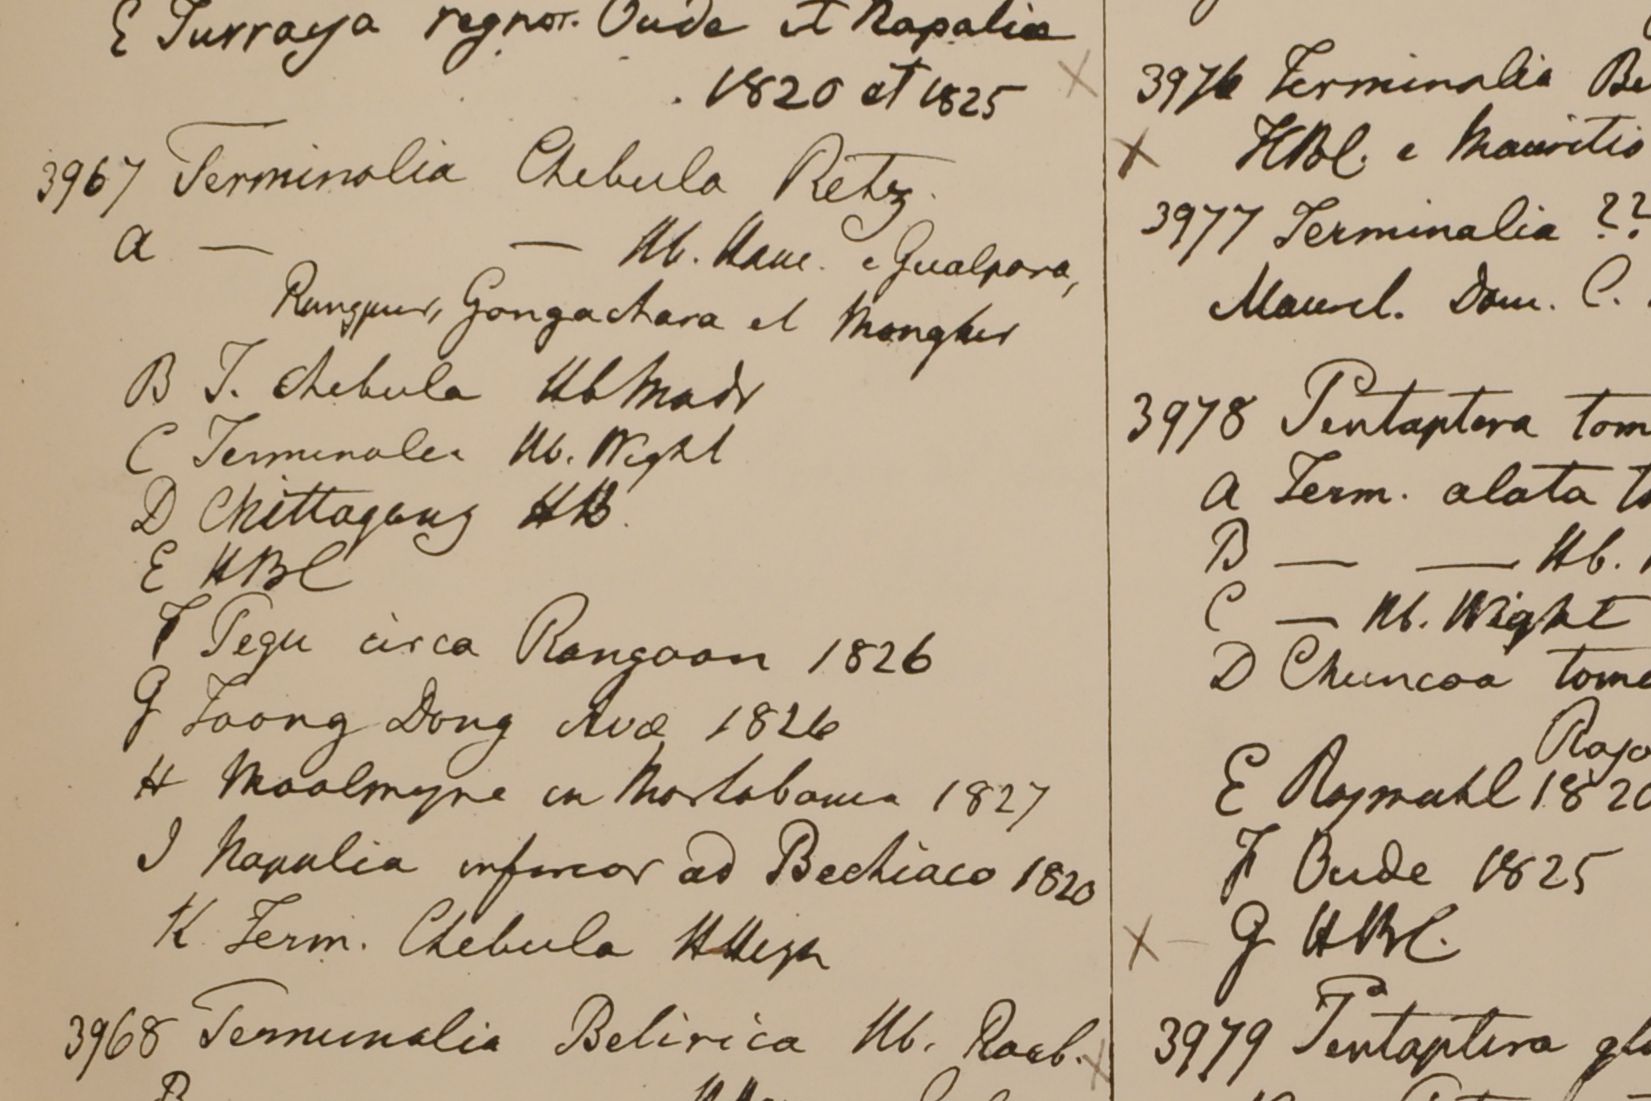 E Turraya regnor. Oude et Napalia
1820 et 1825
3967 Terminalia Chebula Retz.
A — — Hb. Ham. e Gualpara,
Rungpur, Gongachara et Mongher
B T. Chebula Hb Madr
C Terminalia Hb. Wight
D Chittagong HB.
E HBC
F Pegu circa Rangoon 1826
G Toong Dong Avæ 1826
H Moolmyne in Martabania 1827
I Napalia inferior ad Bechiaco 1820
K Term. Chebula
3968 Terminalia Belirica Hb. Roxb.
B
3976 Terminalia Be
HBC. e Mauritio
3977 Terminalia ??
Dom. C.
3978 Pentaptera tom
A Term. alata to
B — — Hb.
C — Hb. Wight
D Chuncoa tome
Raja
E Rajmahl 1820
F Oude 1825
G HBC.
3979 Pentaptera gla